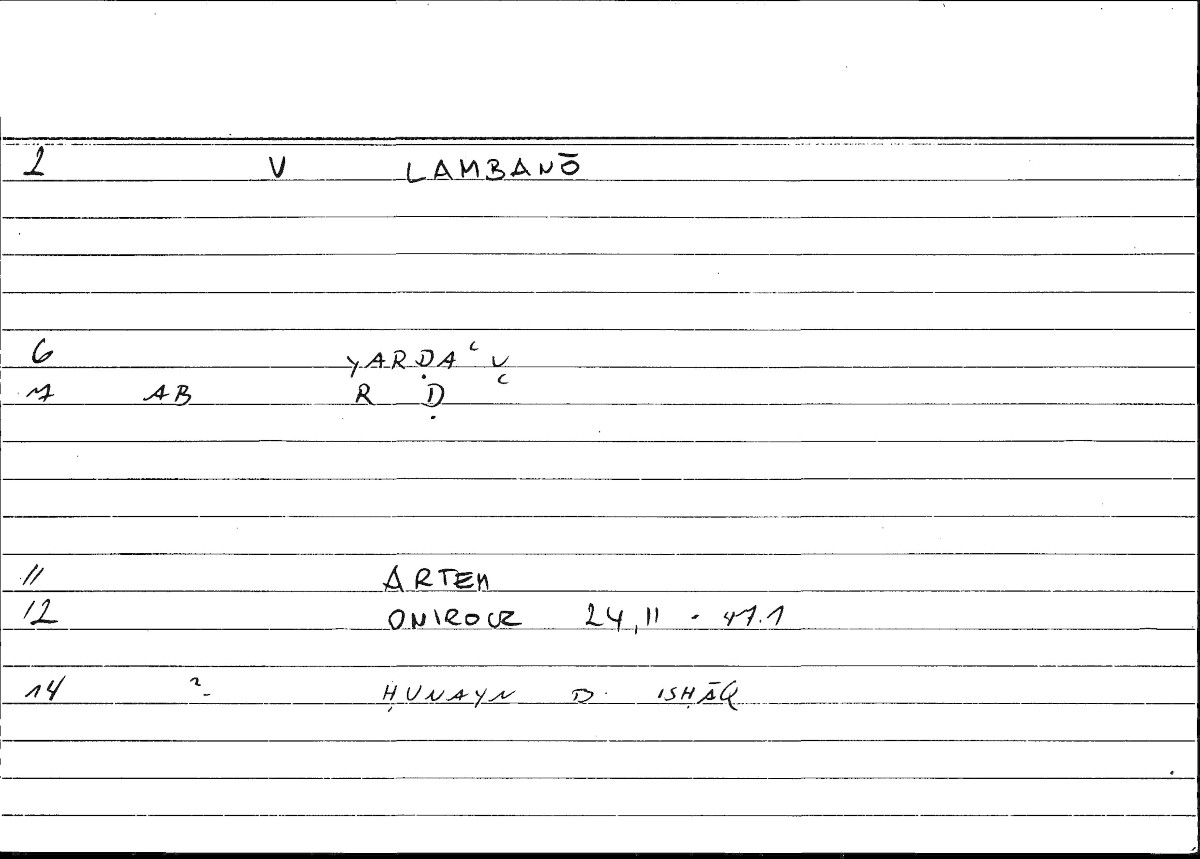 2 V LAMBANŌ
6 YARḌAʿU
7 AB R Ḍ ʿ
11 ARTEM
12 ONIROCR 24,11 - 47.1
14 2- ḤUNAYN B. ISḤĀQ